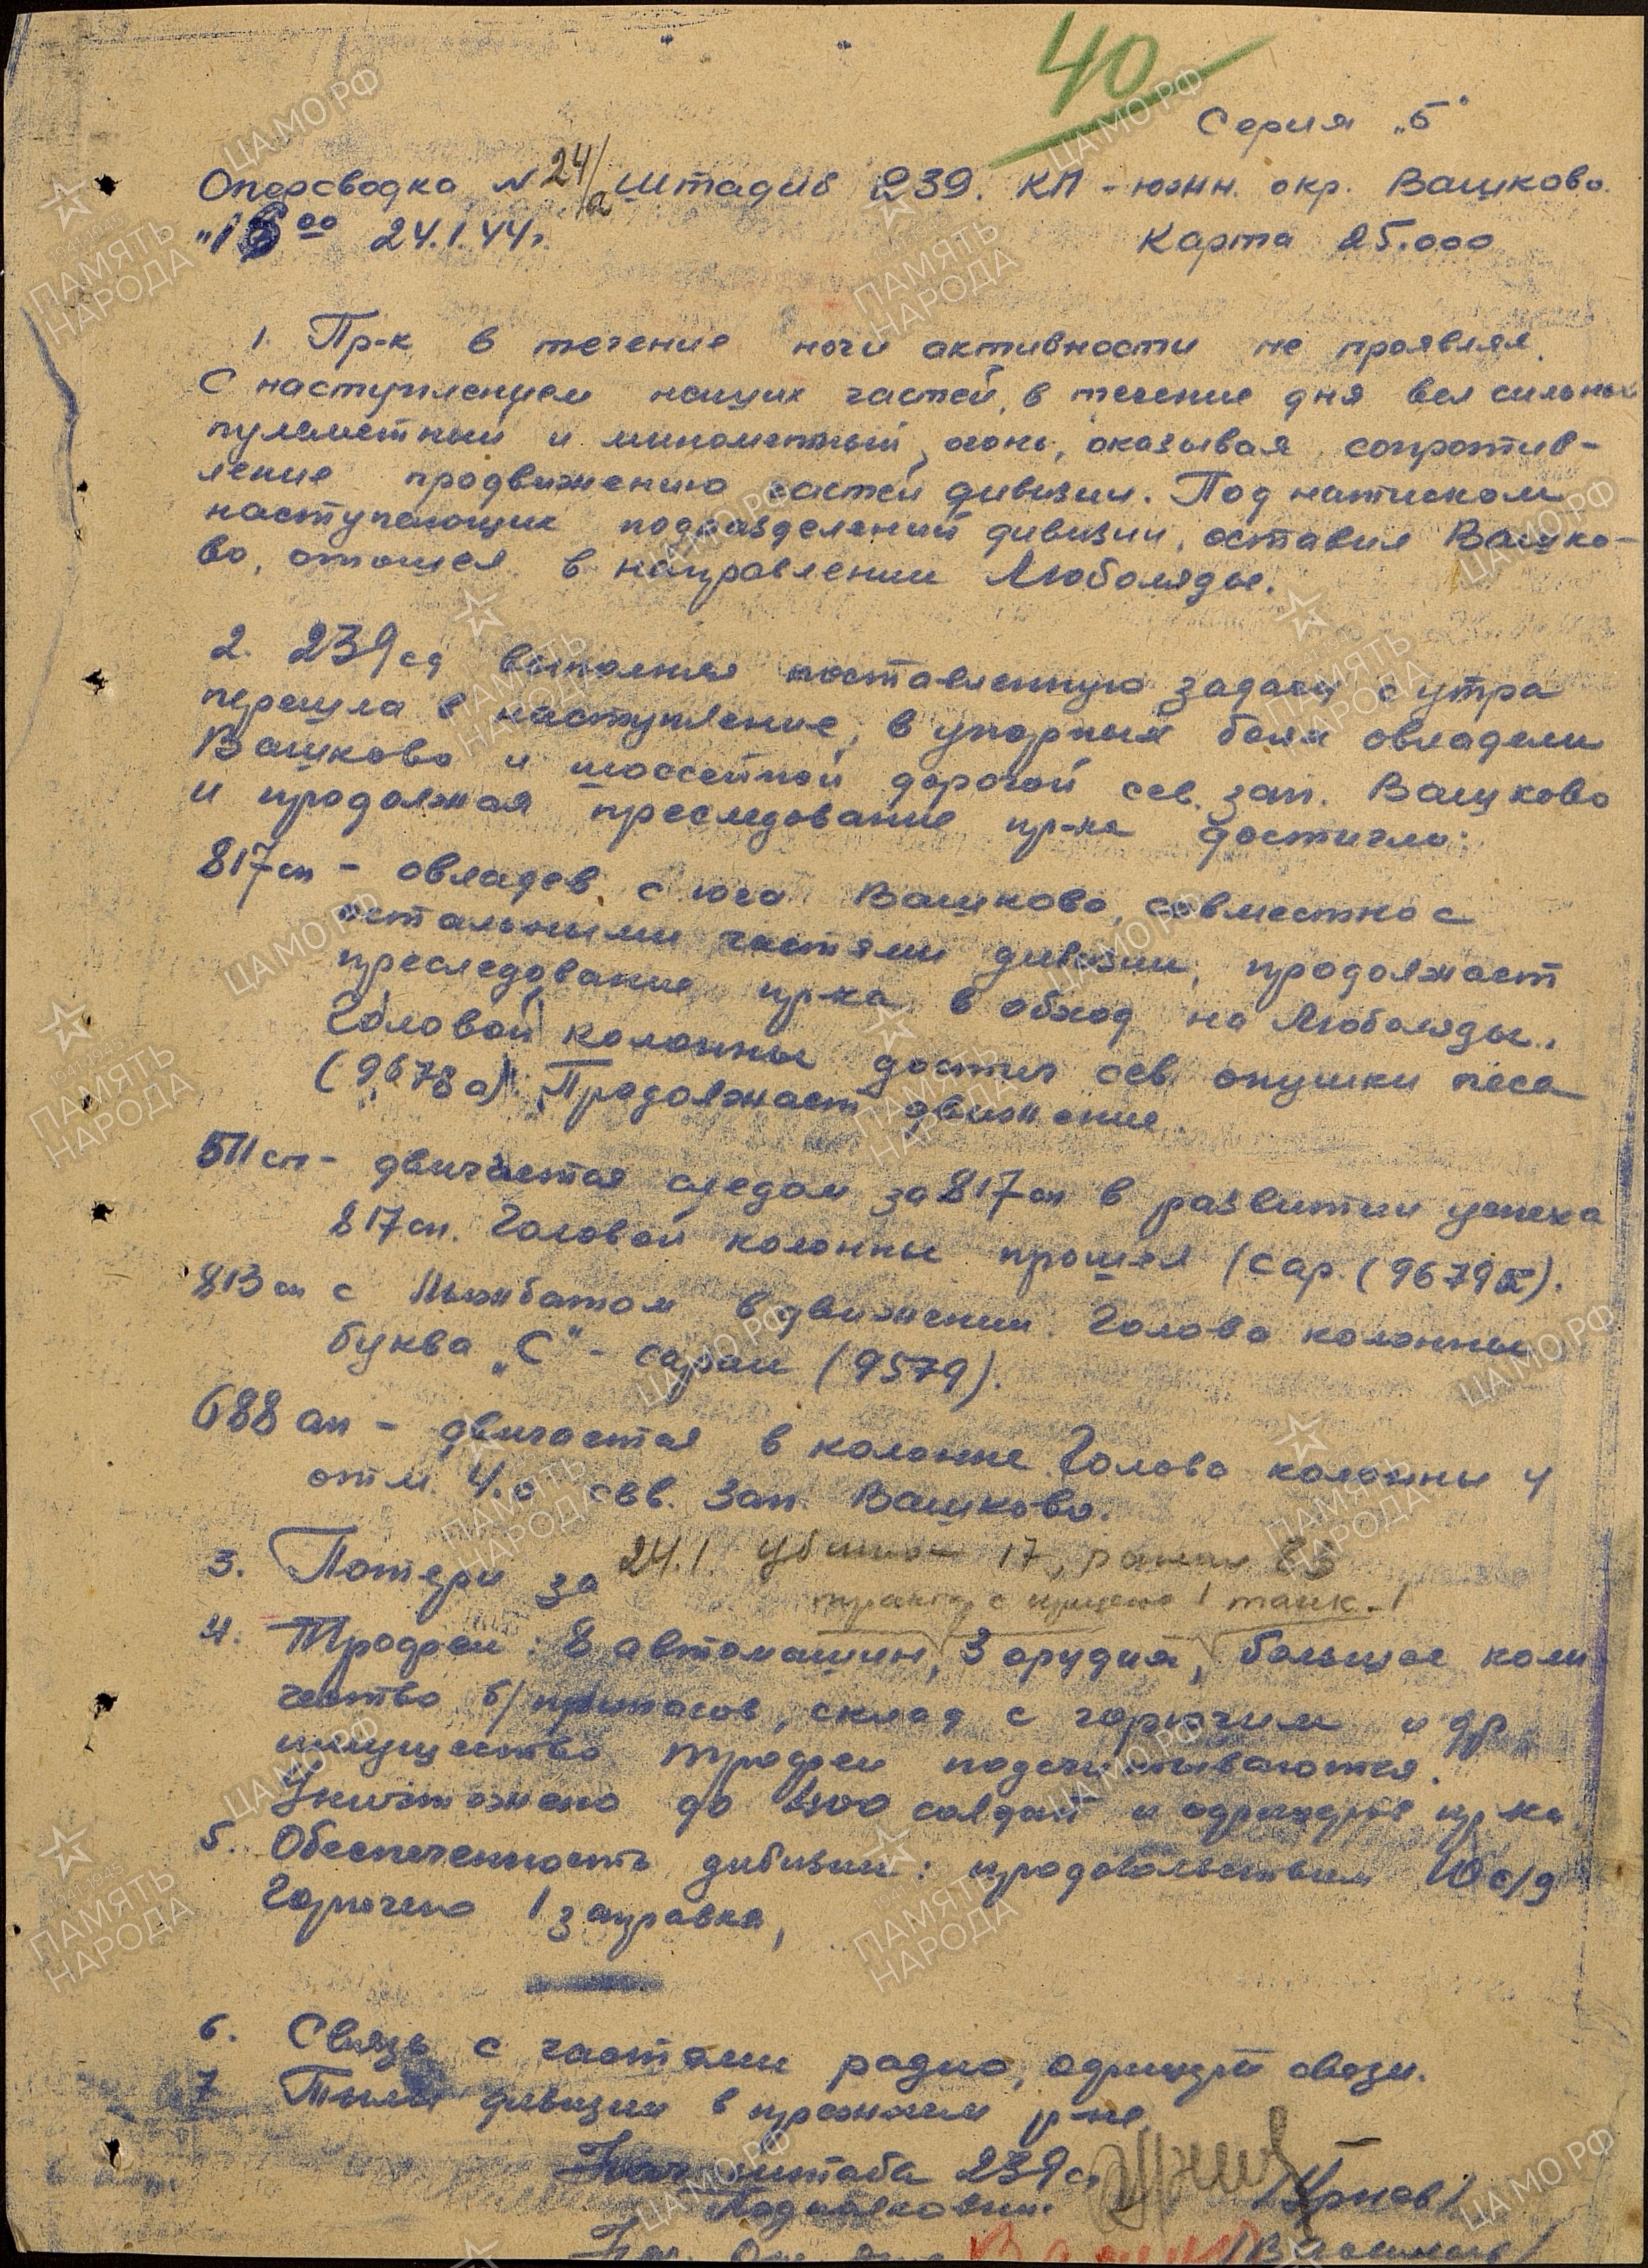 40
Серия "Б"
Оперсводка N 24/а штадив 239. КП - южн. окр. Вашково.
"16 00 24.1.44г. Карта 25.000
1. Пр-к в течение ночи активности не проявлял.
С наступлением наших частей, в течение дня вел сильный
пулеметный и минометный огонь, оказывая сопротив-
ление продвижению частей дивизии. Под натиском
наступающих подразделений дивизии, оставил Вашко-
во, отошел в направлении Люболяды.
2. 239 сд выполняя поставленную задачу с утра
перешла в наступление, в упорных боях овладели
Вашково и шоссейной дорогой сев. зап. Вашково
и продолжая преследование пр-ка достигли:
817 сп - овладев с юга Вашково, совместно с
остальными частями дивизии, продолжает
преследование пр-ка в обход на Люболяды.
Головой колонны достиг сев. опушки леса
(9678а). Продолжает движение.
511 сп - двигается следом за 817 сп в развитии успеха
817 сп. Головой колонны прошел 1 сар. (9679а).
813 сп с Лыжбатом в движении. Голова колонны
буква "С" - сараи (9579).
688 ап - двигается в колонне. Голова колонны у
отм. 4.0 сев. зап. Вашково.
3. Потери за 24.1. убито - 17, ранен 83
трактор с прицепо 1 танк - 1
4. Трофеи: 8 автомашин, 3 орудия, большое коли-
чество б/припасов, склад с горючим и др.
имущество трофеи подсчитываются.
Уничтожено до 400 солдат и офицеров пр-ка.
5. Обеспеченность дивизии: продовольствием 10 с/д
Горючего 1 заправка,
6. Связь с частями радио, офицер связи.
7 Тылы дивизии в прежнем р-не.
Нач штаба 239 сд
Подполковник. /Урнов/